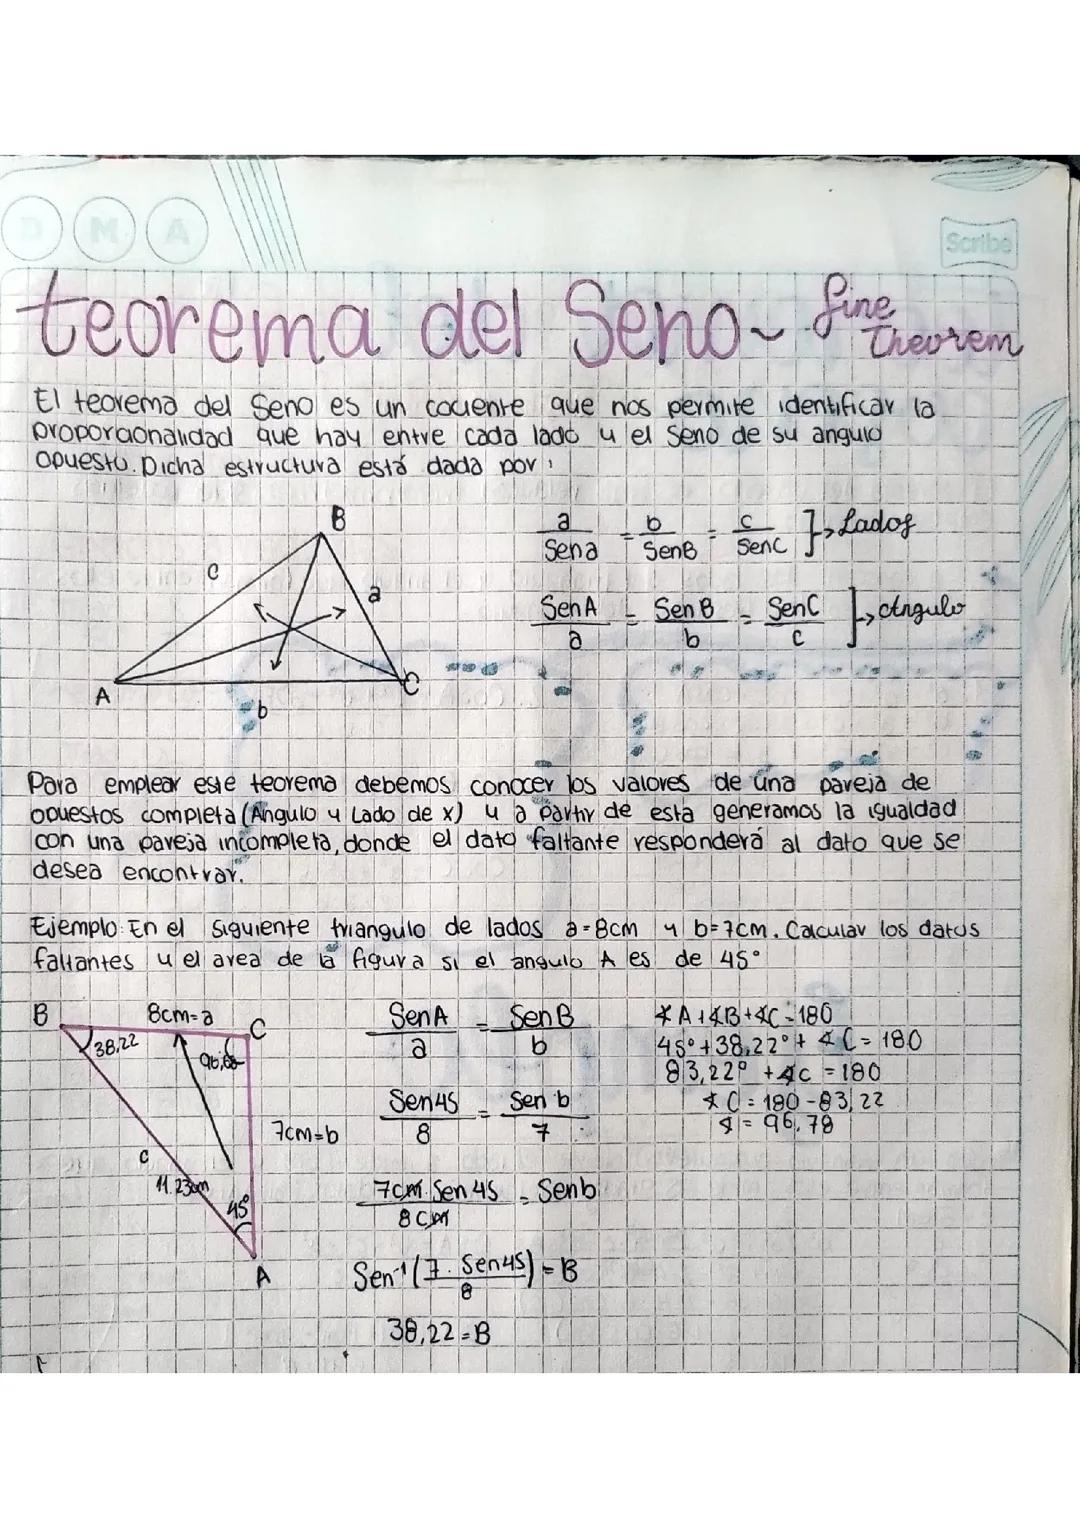 D M A
Scribe
teorema del Seno~ Sine Theorem
El teorema del Seno es un cociente que nos permite identificar la
proporcionalidad que hay entre cada lado y el Seno de su angulo
opuesto. Dicha estructura está dada por:
B
c
a
A
C
b
a/Sena = b/SenB = c/SenC }→Lados
SenA/a = SenB/b = SenC/c }→Angulo
Para emplear este teorema debemos conocer los valores de una pareja de
opuestos completa (Angulo y Lado de x) y a partir de esta generamos la igualdad
con una pareja incompleta, donde el dato faltante responderá al dato que se
desea encontrar.
Ejemplo: En el siguiente triangulo de lados a=8cm y b=7cm. Calcular los datos
faltantes y el area de la figura si el angulo A es de 45°
B 8cm=a C
38,22
7cm=b
c
11.23cm
45°
A
SenA/a = SenB/b
Sen45/8 = Sen b/7
7cm.Sen45/8cm = Senb
Sen⁻¹(7.Sen45/8) = B
38,22=B
∢A+∢B+∢C=180
45°+38,22°+∢C=180
83,22°+∢C=180
∢C=180-83,22
∢=96,78